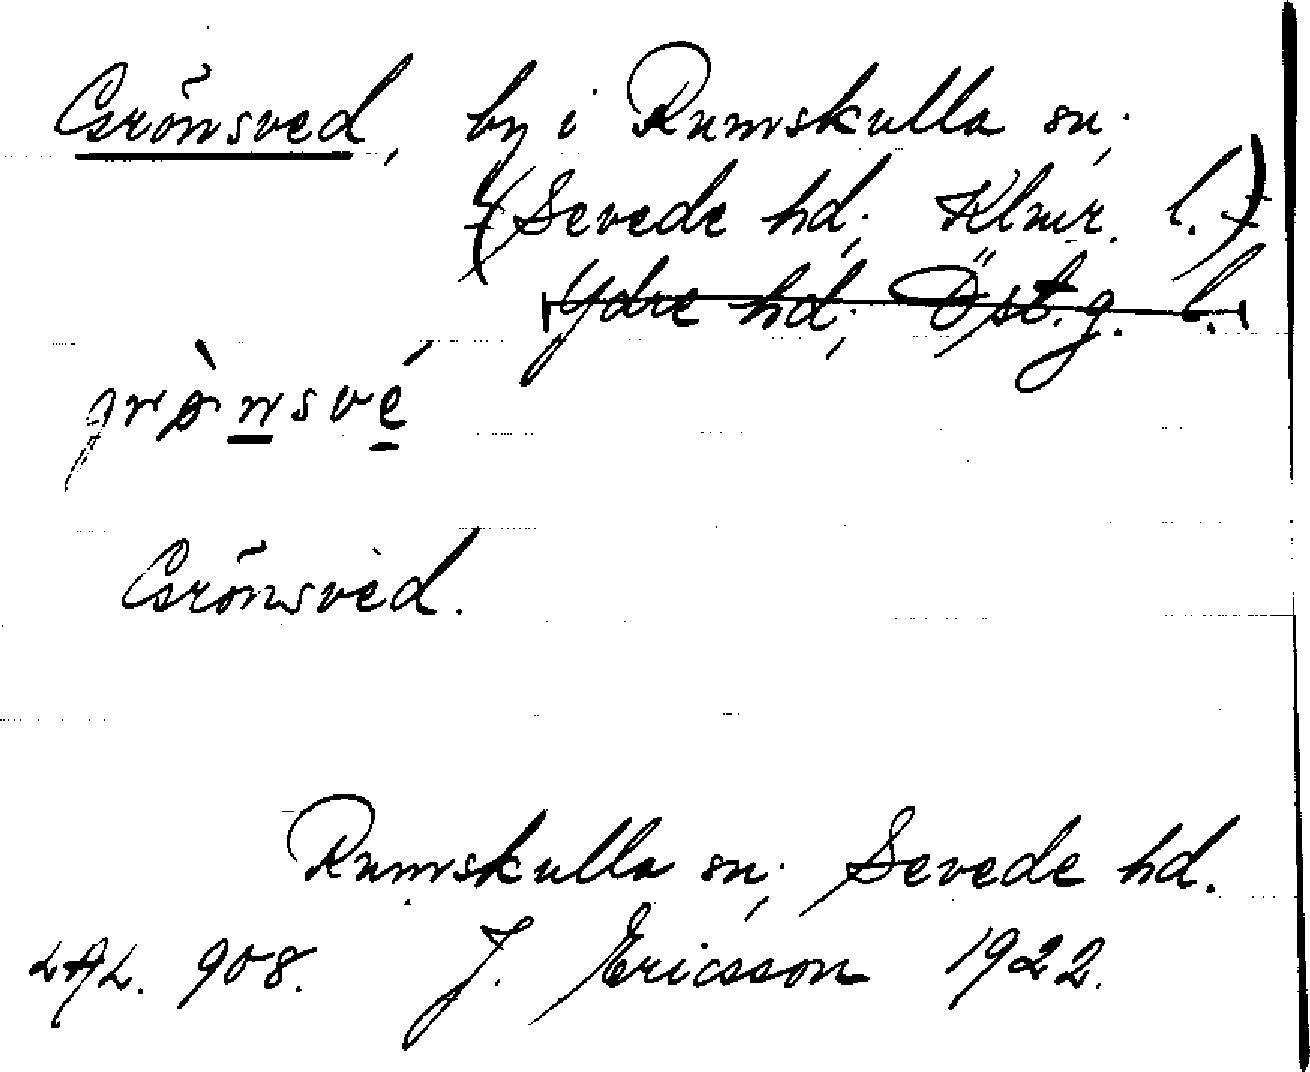 Grönsved, by i Rumskulla sn,
(Sevede hd, Klmr. l.)
Ydre hd, Öst.g. l.
grø̀nsvé
Grönsvèd.
Rumskulla sn, Sevede hd.
LAL. 908. J. Ericsson 1922.